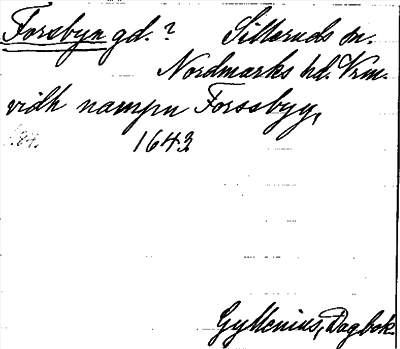 Forsbyn gd.? Silleruds sn.
Nordmarks hd. Vrm.
vidh nampn Forssbyy,
1643
Gyllenius, Dagbok.